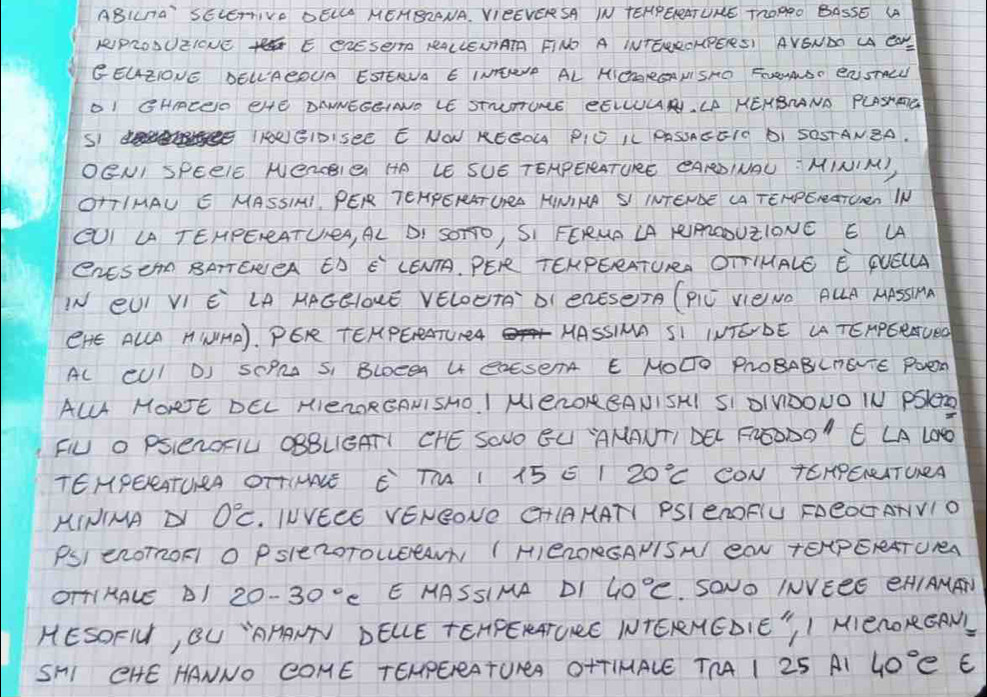 ABILITA' SELETTIVA DELLA MEMBRANA. VICEVERSA IN TEMPERATURE TROPPO BASSE LA
RIPRODUZIONE E CRESCITA RALLENTATA FINO A INTERROMPERSI AVENDO LA CON-
GELAZIONE DELL'ACQUA ESTERNA E INTERNA AL MICRORGANISMO FORMANDO CRISTALLI
DI GHIACCIO CHE DANNEGGIANO LE STRUTTURE CELLULARI. LA MEMBRANA PLASMATICA
SI IRRIGIDISCE E NON REGOLA PIÙ IL PASSAGGIO DI SOSTANZA.
OGNI SPECIE MICROBICA HA LE SUE TEMPERATURE CARDINALI: MINIMI,
OTTIMALI E MASSIMI. PER TEMPERATURA MINIMA SI INTENDE LA TEMPERATURA IN
CUI LA TEMPERATURA, AL DI SOTTO, SI FERMA LA RIPRODUZIONE E LA
CRESCITA BATTERICA ED E' LENTA. PER TEMPERATURA OTTIMALE È QUELLA
IN CUI VI E' LA MAGGIORE VELOCITA' DI CRESCITA (PIÙ VICINO ALLA MASSIMA
CHE ALLA MINIMA). PER TEMPERATURA MASSIMA SI INTENDE LA TEMPERATURA
AL CUI DI SOPRA SI BLOCCA LA CRESCITA E MOLTO PROBABILMENTE PORTA
ALLA MORTE DEL MICRORGANISMO. I MICRORGANISMI SI DIVIDONO IN PSICRO-
FILI O PSICROFILI OBBLIGATI CHE SONO GLI "AMANTI DEL FREDDO" E LA LORO
TEMPERATURA OTTIMALE È TRA I 15 E I 20°C CON TEMPERATURA
MINIMA DI 0°C. INVECE VENGONO CHIAMATI PSICROFILI FACOLTATIVI O
PSICROTROFI O PSICROTOLLERANTI I MICRORGANISMI CON TEMPERATURA
OTTIMALE DI 20-30°C E MASSIMA DI 40°C. SONO INVECE CHIAMATI
MESOFILI, GLI "AMANTI DELLE TEMPERATURE INTERMEDIE", I MICRORGANI-
SMI CHE HANNO COME TEMPERATURA OTTIMALE TRA I 25 AI 40°C E